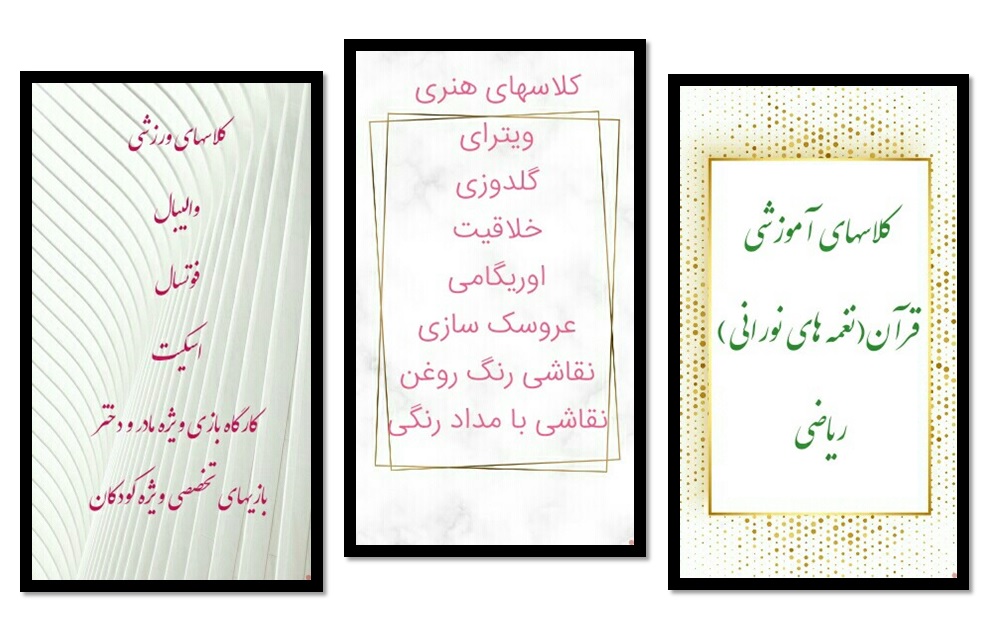 کلاسهای آموزشی
قرآن(نغمه های نورانی)
ریاضی
کلاسهای هنری
ویترای
گلدوزی
خلاقیت
اوریگامی
عروسک سازی
نقاشی رنگ روغن
نقاشی با مداد رنگی
کلاسهای ورزشی
والیبال
فوتسال
اسکیت
کارگاه بازی ویژه مادر و دختر
بازیهای تخصصی ویژه کودکان